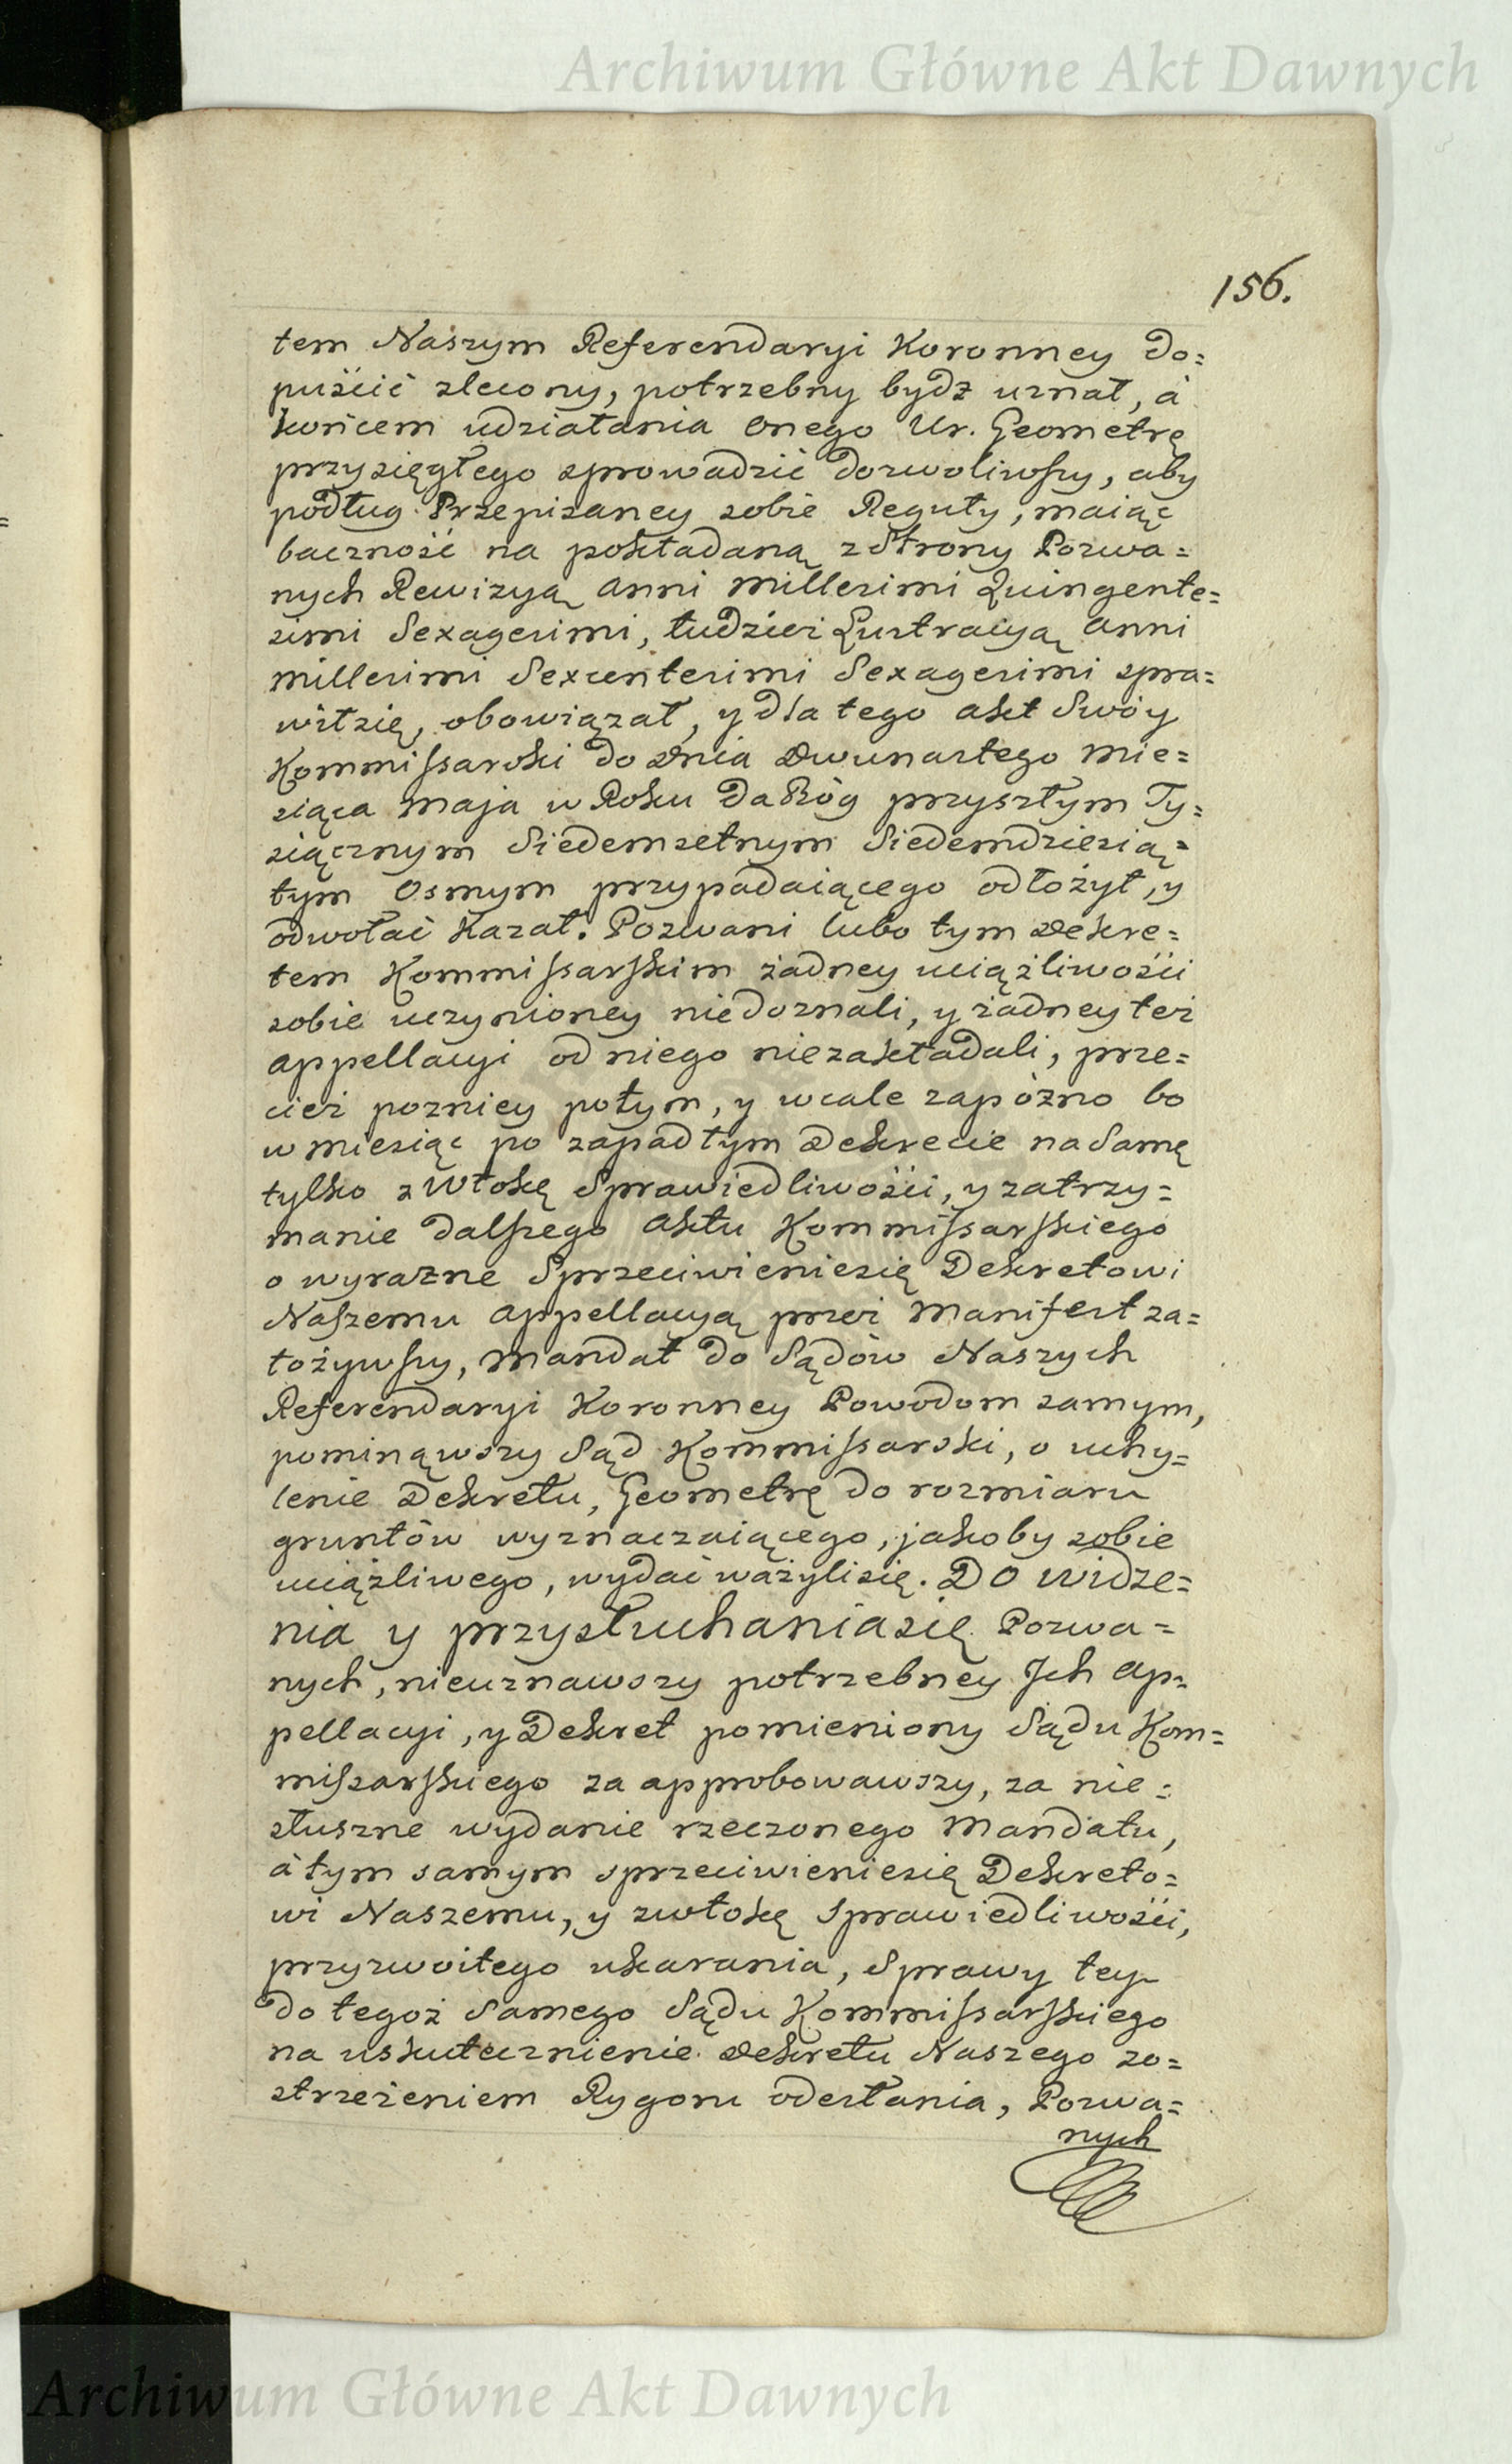 Archiwum Główne Akt Dawnych
156.
tem Naszym Referendaryi Koronney do=
puścić zlecony, potrzebny bydz uznał, à
końcem udziałania onego Ur. Geometrę
przysięgłego sprowadzić dozwoliwszy, aby
podług Przepisaney sobie Reguły, maiąc
baczność na pokładaną z Strony Pozwa=
nych Rewizyą Anni Millesimi Quingente=
simi Sexagesimi, tudzież Lustracyą Anni
Millesimi Sexcentesimi Sexagesimi spra=
wił się, obowiązał, y dla tego akt Swóy
Kommissarski do Dnia Dwunastego Mie=
siąca Maja w Roku Da Bóg przyszłym Ty=
siącznym Siedemsetnym Siedemdziesią=
tym Osmym przypadaiącego odłożył, y
odwołać kazał. Pozwani lubo tym Dekre=
tem Kommissarskim żadney uciążliwości
sobie uczynioney niedoznali, y żadney też
appellacyi od niego niezakładali, prze=
cież pozniey potym, y wcale zapóżno bo
w miesiąc po zapadłym Dekrecie na Samę
tylko zwłokę Sprawiedliwości, y zatrzy=
manie dalszego Aktu Kommissarskiego
o wyrazne Sprzeciwieniesię Dekretowi
Naszemu Appellacyą przez Manifest za=
łożywszy, Mandat do Sądów Naszych
Referendaryi Koronney Powodom samym,
pominąwszy Sąd Kommissarski, o uchy=
lenie Dekretu, Geometrę do rozmiaru
gruntów wyznaczaiącego, jakoby sobie
uciążliwego, wydać ważylisię. Do widze=
nia y przysłuchaniasię Pozwa=
nych, nieuznawszy potrzebney Jch Ap=
pellacyi, y Dekret pomieniony Sądu Kom=
missarskiego za approbowawszy, za nie=
słuszne wydanie rzeczonego Mandatu,
à tym samym sprzeciwieniesię Dekreto=
wi Naszemu, y zwłokę Sprawiedliwości,
przyzwoitego ukarania, Sprawy tey
do tegoż Samego Sądu Kommissarskiego
na uskutecznienie Dekretu Naszego zo=
strzeżeniem Rygoru odesłania, Pozwa=
nych
Archiwum Główne Akt Dawnych